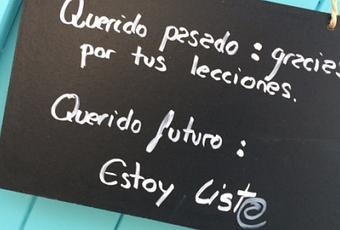 Querido pasado : gracias
por tus lecciones.
Querido futuro :
Estoy List@